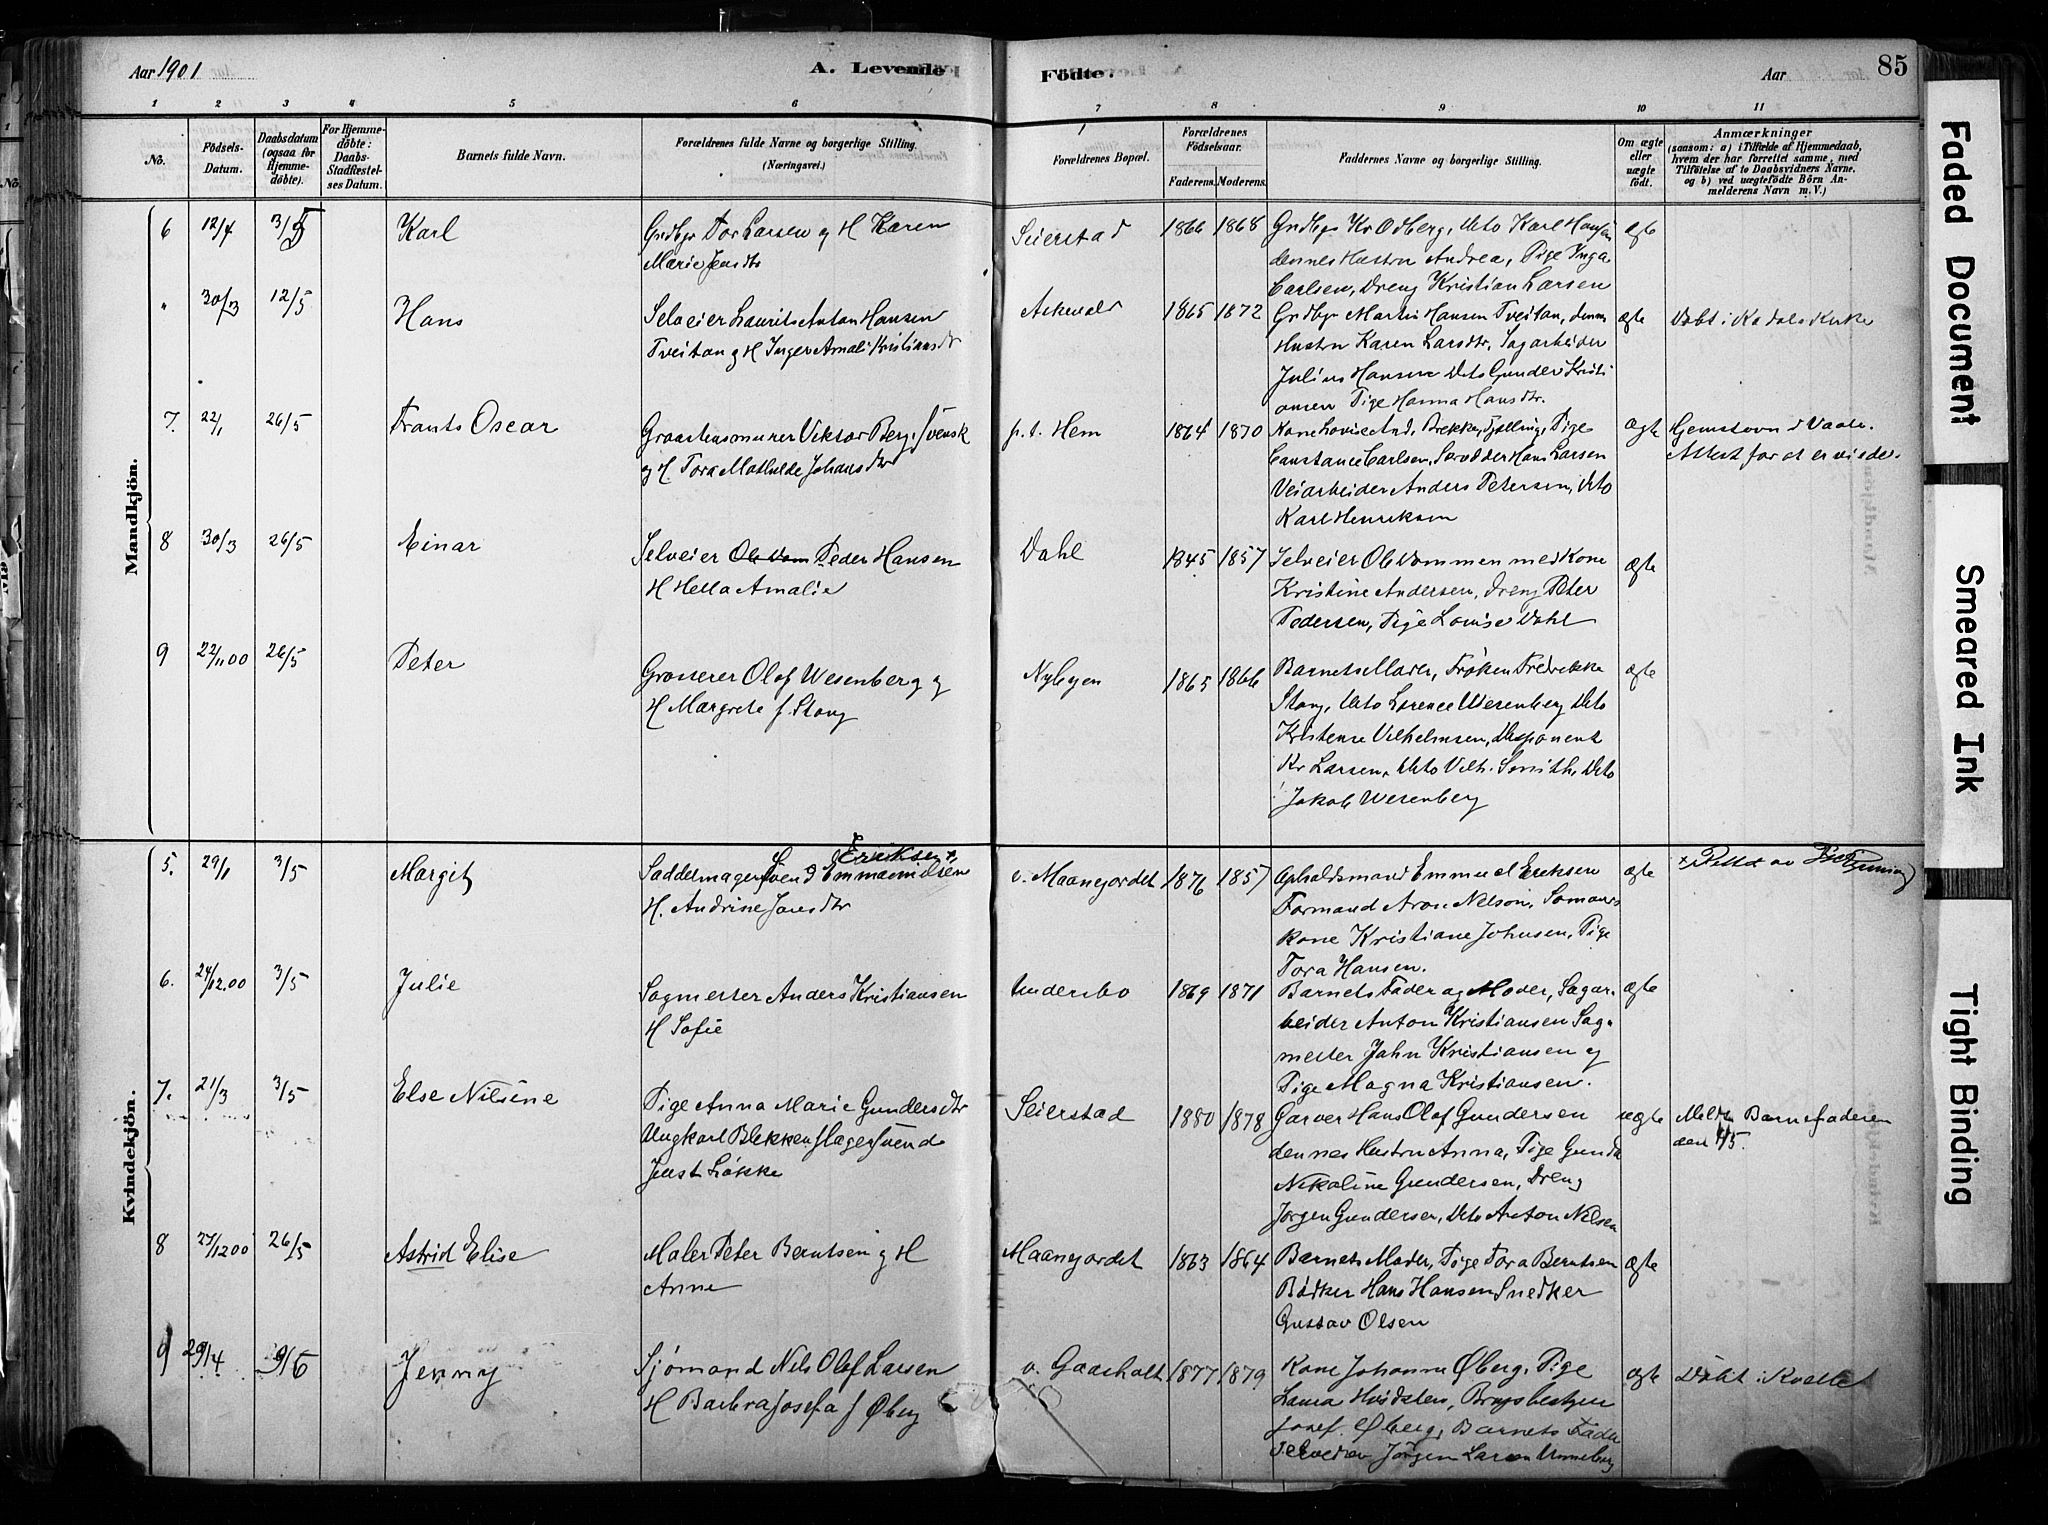 Aar 1901
A. Levende
Födte.
Aar
85
1 2 3 4 5 6 7 8 9 10 11
No.
Födsels-Datum.
Daabsdatum (ogsaa for Hjemme-döbte).
For Hjemme-döbte: Daabs-Stadfæstel-ses Datum.
Barnets fulde Navn.
Forældrenes fulde Navne og borgerlige Stilling.
(Næringsvei.)
Forældrenes Bopæl.
Forældrenes Födselsaar.
Faderens. Moderens.
Faddernes Navne og borgerlige Stilling.
Om ægte eller uægte födt.
Anmærkninger
(saasom: a) i Tilfælde af Hjemmedaab,
hvem der har forrettet samme, med
Tilföielse af to Daabsvidners Navne,
og b) ved uægtefödte Börn An-
melderens Navn m. V.)
Mandkjön.
6 12/4 3/5 Karl
Grdbgr Tor Larsen og H Karen
Marie Jensdtr
Seierstad 1866 1868
Grdbgr Kr Odberg, Dito Karl Hansen
dennes Hustru Andrea, Pige Inga
Carlsen, Dreng Kristian Larsen
ægte
" 30/3 12/5 Hans
Selveier Laurits Anton Hansen
Tveitan og H Inger Amalie Kristiansdtr
1865 1872
Grdbgr Martin Hansen Tveitan, dennes
Hustru Karen Larsdtr, Sagarbeider
Julius Hansen Dito Gunder Kristi
ansen Pige Hanna Hansdtr.
ægte
Döbt i Kodals Kirke
7. 22/1 26/5 Frants Oscar
Graastensmurer Viktor Berg, svensk
og H. Tora Mathilde Johansdtr
p.t. Hem 1864 1870
Kone Lovise And. Brekke, Tjølling, Pige
Constance Carlsen, Hans Larsen
Veiarbeider Anders Petersen, Dito
Karl Henriksen
ægte
Attest for at er viede.
8 30/3 26/5 Einar
Selveier Peder Hansen
H Hella Amalie
Dahl 1845 1857
Selveier Ole Dammen med Kone
Kristine Andersen, Dreng Peter
Pedersen, Pige Louise Dahl
ægte
9 22/11 00 26/5 Peter
Grosserer Olaf Wesenberg og
H Margrete f. Stang
Nybyen 1865 1866
Barnets Moder, Frøken Fredrikke
Stang, Dito Lorence Wesenberg Dito
Kristense Vilhelmsen, Disponent
Kr Larsen, Dito Vilh. Smith, Dito
Jakob Wesenberg
ægte
Kvindekjön.
5. 29/1 3/5 Margit
Eriksen +
Saddelmagersvend Emmanuelsen
H. Andrine Jansdtr
v. Maanejordet 1876 1857
Opholdsmand Emmuel Eriksen
Formand Aron Nelson, Sømands
kone Kristiane Johnsen, Pige
Tora Hansen.
ægte
+ Rettet av
6. 24/12.00 3/5 Julie
Sagmester Anders Kristiansen
H Sofie
Undersbo 1869 1871
Barnets Fader og Moder, Sagar-
beider Anton Kristiansen Sag-
mester John Kristiansen og
Pige Magna Kristiansen.
ægte
7. 21/3 3/5 Else Nilsine
Pige Anna Marie Gundersdtr
Ungkarl Blikkenslagersvend
Just Løkke
Seierstad 1880 1878
Garver Hans Olaf Gundersen
dennes Hustru Anna, Pige Gunda
Nikoline Gundersen, Dreng
Jørgen Gundersen, Dito Anton Nilsen
uægte
Meldt Barnefaderen
den 4/5.
8 27/12 00 26/5 Astrid Elise
Maler Peter Berntsen og H
Anne
Maanejordet 1863 1864
Barnets Moder, Pige Tora Berntsen
Bødker Hans Hansen Snedker
Gustav Olsen
ægte
9 29/4 9/6 Jenny
Sjømand Nils Olaf Larsen
H Barbra Josefa f Øberg
v. Gaasholt 1877 1879
Kone Johanne Øberg, Pige
Laura Hvidsten, Brugsbestyrer
Josef Øberg, Barnets Fader
Selveier Jörgen Larsen Unneberg
ægte
Faded Document
Smeared Ink
Tight Binding